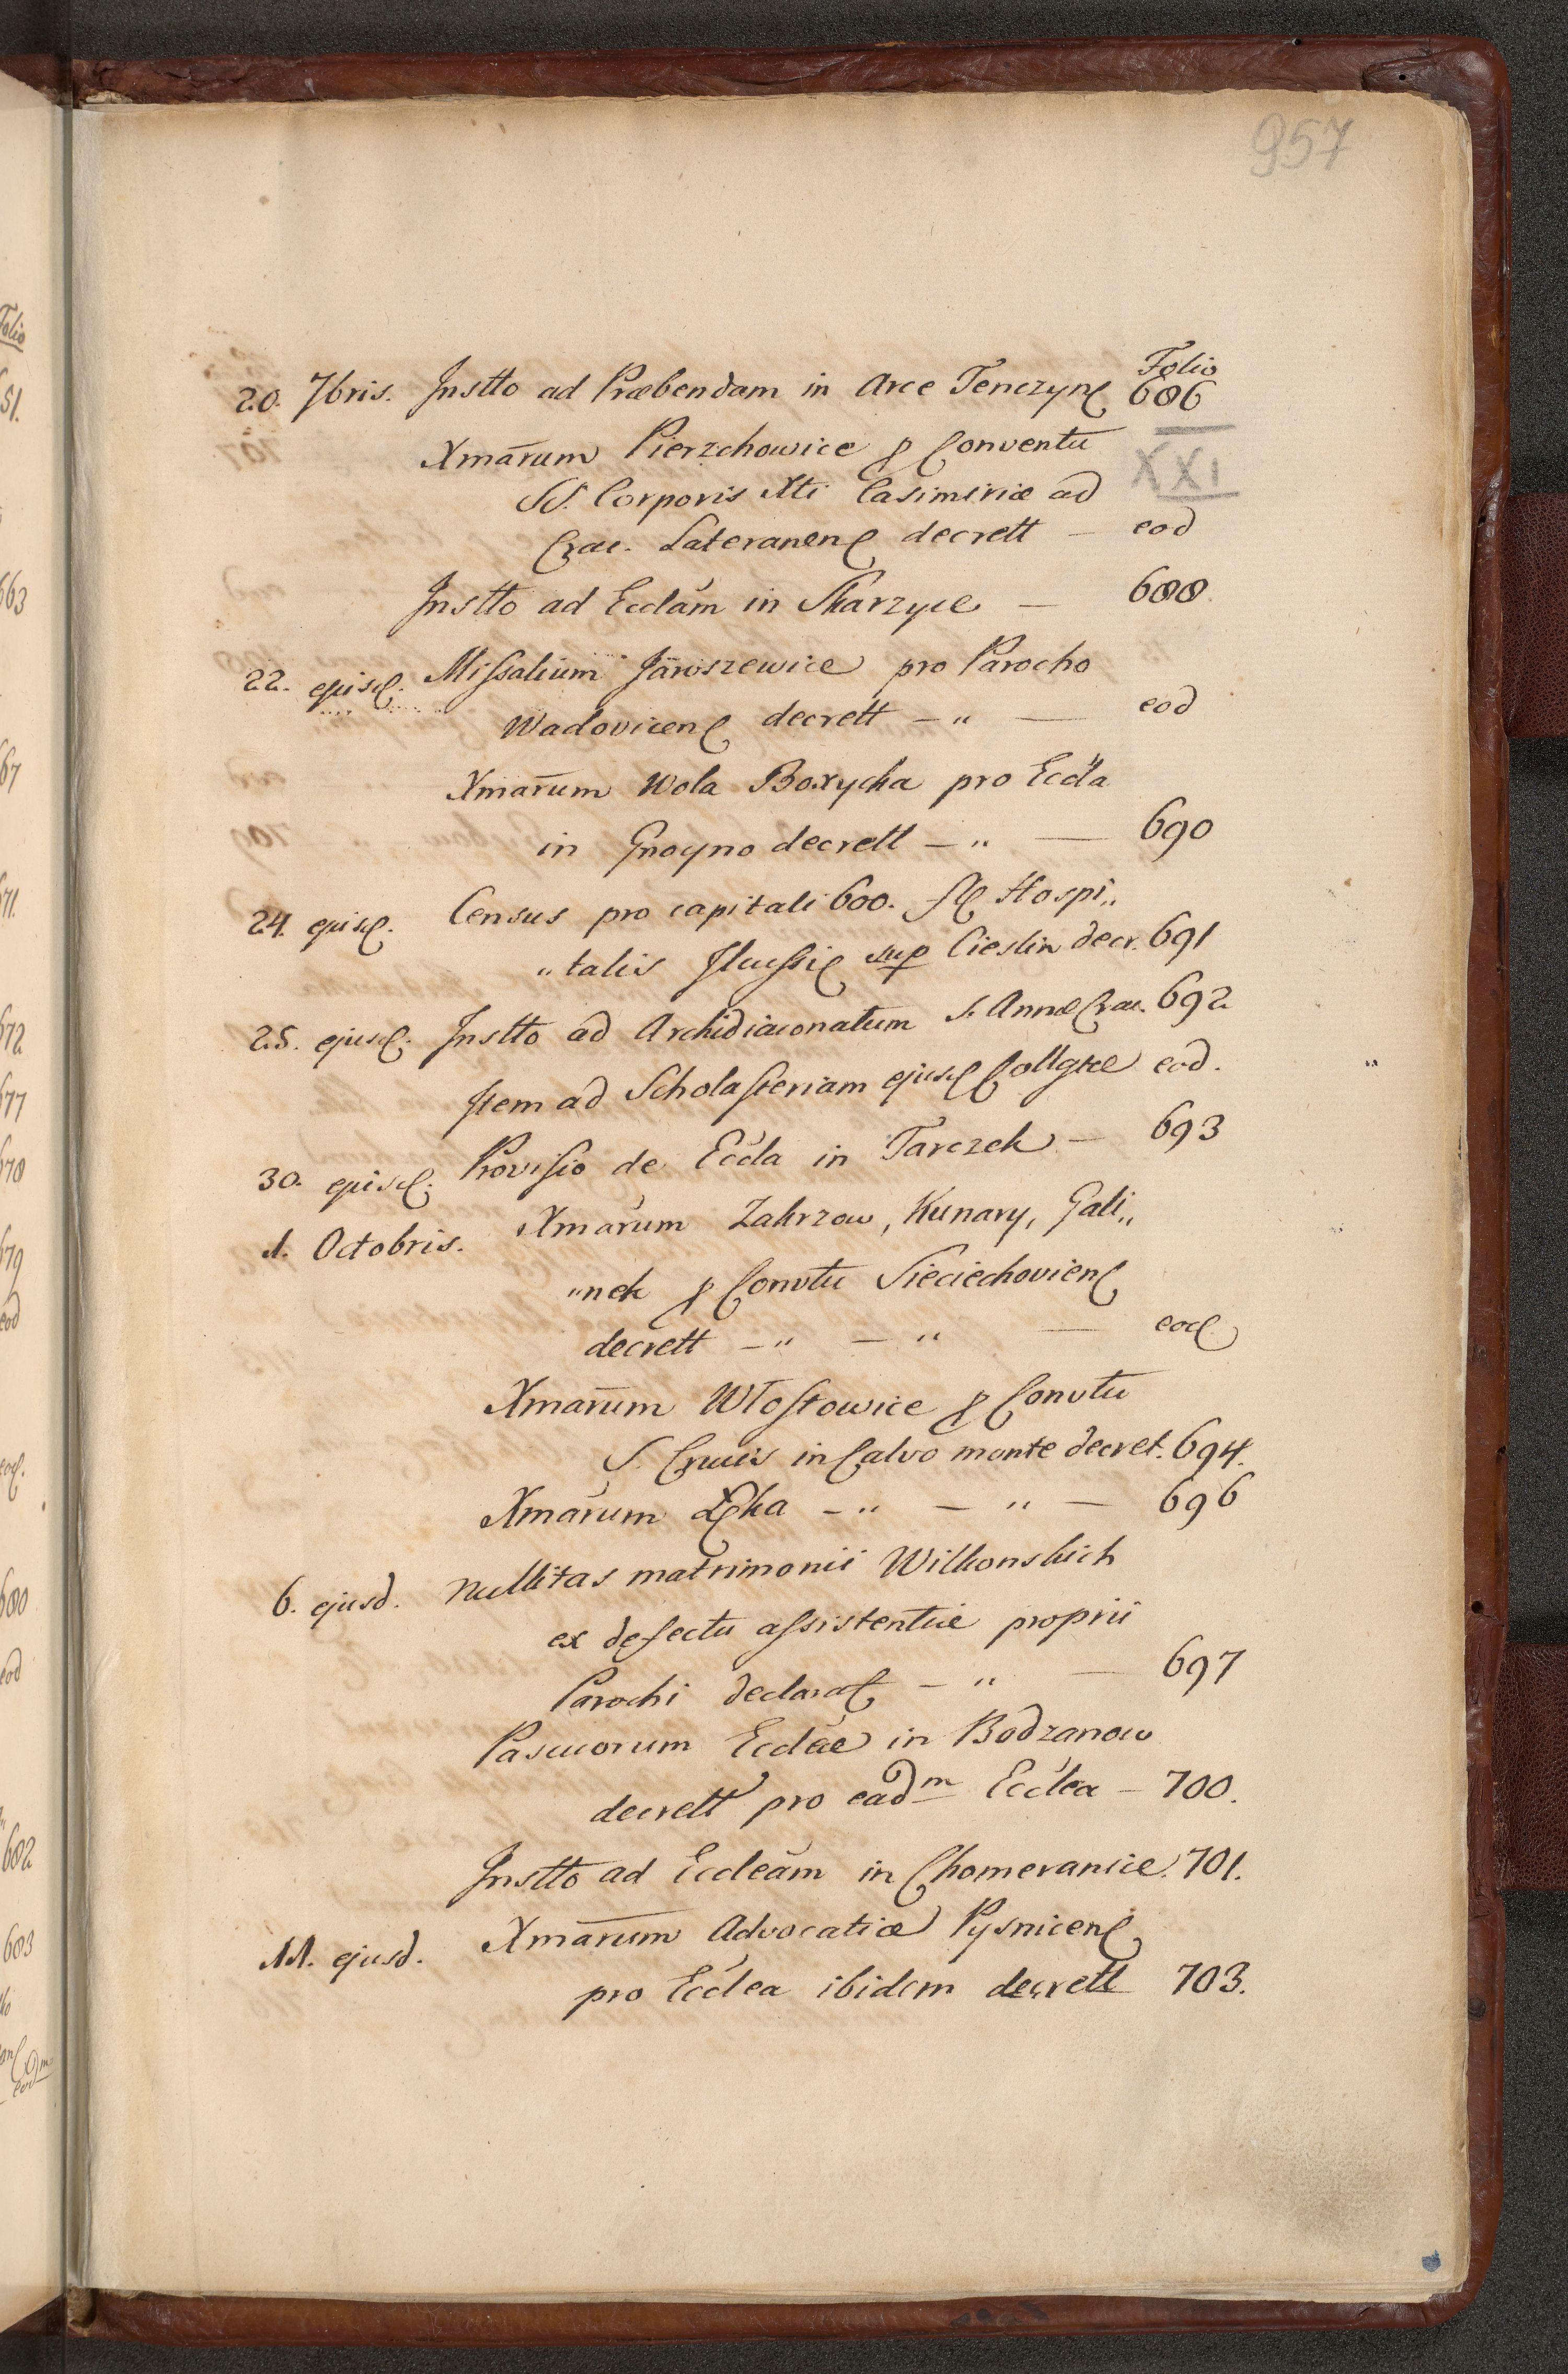 957
Folio
20. 7bris. Instto ad Præbendam in Arce Tenczyn 686
Xmarum Pierzchowice p Conventu
XXI
SS. Corporis Xti Casimiriæ ad
Crac. Lateranen decrett — eod
Instto ad Ecclam in Skarzyce — 688.
22. ejusd. Missalium Jaroszewice pro Parocho
Wadovicen decrett — „ — eod
Xmarum Wola Boxycka pro Eccla
in Gnoyno decrett — „ — 690
24. ejusd. Census pro capitali 600. fl Hospi„
„talis Ilcussi sup Cieslin decr. 691
25. ejusd. Instto ad Archidiaconatum S. Annæ Crac. 692
Item ad Scholasteriam ejusd Collgtæ eod.
30. ejusd. Provisio de Eccla in Tarczek — 693
1. Octobris. Xmarum Zakrzow, Kunary, Gali„
„nek p Convtu Sieciechovien
decrett — „ — „ — eod
Xmarum Wlostowice p Convtu
S. Crucis in Calvo monte decret. 694.
Xmarum Łęka — „ — „ — 696
6. ejusd. Nullitas matrimonii Wilkonskich
ex defectu assistentiæ proprii
Parochi declarat — „ — 697
Pascuorum Eccleæ in Bodzanow
decrett pro eadm Ecclea — 700.
Instto ad Eccleam in Chomeranice. 701.
11. ejusd. Xmarum Advocatiæ Pysnicen
pro Ecclea ibidem decrett 703.